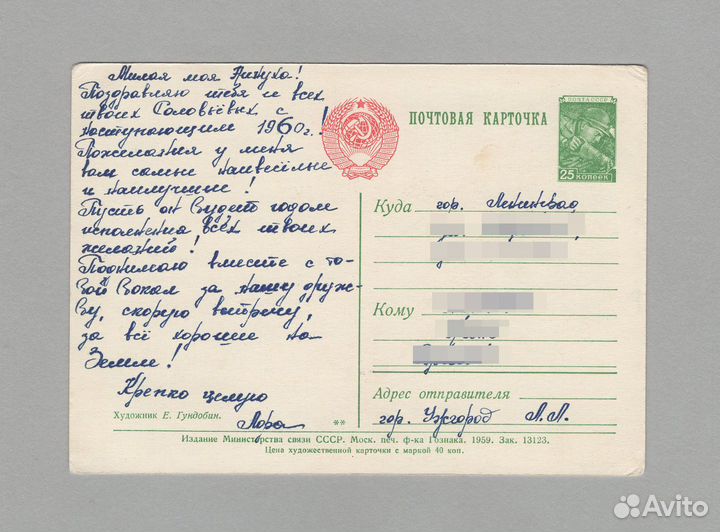 Милая моя Анкуха!
Поздравляю тебя и всех
твоих Соловьёвых с
наступающим 1960 г.!
Пожелания у меня
вам самые навесёлые
и наилучшие!
Пусть он будет годом
исполнения всех твоих
желаний!
Поднимаю вместе с то-
бой бокал за нашу друж-
бу, скорую встречу,
за всё хорошее на
Земле!
Крепко целую
Лора
Художник Е. Гундобин.
**
ПОЧТОВАЯ КАРТОЧКА
ПОЧТА СССР
25 КОПЕЕК
Куда гор. Ленинград
Кому
Адрес отправителя
гор. Ужгород Л.Л.
Издание Министерства связи СССР. Моск. печ. ф-ка Гознака. 1959. Зак. 13123.
Цена художественной карточки с маркой 40 коп.
Avito